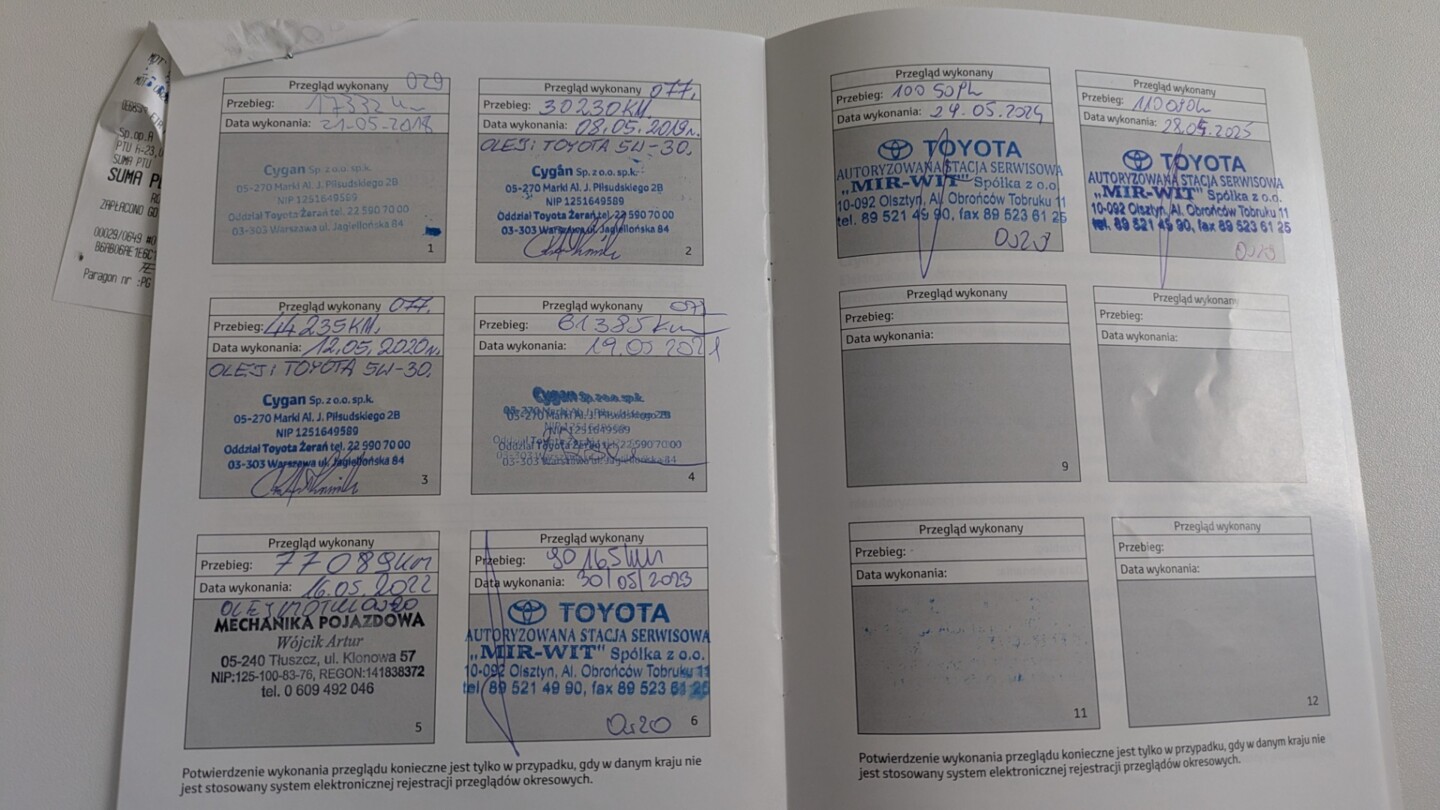 SUMA PTU
Paragon nr
Przegląd wykonany 029
Przebieg: 17332 km
Data wykonania: 21-05-2018
Cygan Sp. z o.o. sp.k.
05-270 Marki Al. J. Piłsudskiego 2B
NIP 1251649589
Oddział Toyota Żerań tel. 22 590 70 00
03-303 Warszawa ul. Jagiellońska 84
1
Przegląd wykonany 077.
Przebieg: 30230KM.
Data wykonania: 08.05.2019r.
OLEJ: TOYOTA 5W-30.
Cygan Sp. z o.o. sp.k.
05-270 Marki Al. J. Piłsudskiego 2B
NIP 1251649589
Oddział Toyota Żerań tel. 22 590 70 00
03-303 Warszawa ul. Jagiellońska 84
2
Przegląd wykonany 077.
Przebieg: 44235KM.
Data wykonania: 12.05.2020r.
OLEJ: TOYOTA 5W-30.
Cygan Sp. z o.o. sp.k.
05-270 Marki Al. J. Piłsudskiego 2B
NIP 1251649589
Oddział Toyota Żerań tel. 22 590 70 00
03-303 Warszawa ul. Jagiellońska 84
3
Przegląd wykonany
Przebieg: 61385km
Data wykonania: 19.05 2021
Cygan Sp. z o.o. sp.k.
05-270 Marki Al. J. Piłsudskiego 2B
NIP 1251649589
Oddział Toyota Żerań tel. 22 590 70 00
03-303 Warszawa ul. Jagiellońska 84
4
Przegląd wykonany
Przebieg: 77089KM
Data wykonania: 16.05.2022
OLEJ MOTUL 0W20
MECHANIKA POJAZDOWA
Wójcik Artur
05-240 Tłuszcz, ul. Klonowa 57
NIP:125-100-83-76, REGON:141838372
tel. 0 609 492 046
5
Przegląd wykonany
Przebieg: 90165km
Data wykonania: 30/05/2023
TOYOTA
AUTORYZOWANA STACJA SERWISOWA
„MIR-WIT" Spółka z o.o.
10-092 Olsztyn, Al. Obrońców Tobruku 11
tel. 89 521 49 90, fax 89 523 61 25
0w20
6
Potwierdzenie wykonania przeglądu konieczne jest tylko w przypadku, gdy w danym kraju nie
jest stosowany system elektronicznej rejestracji przeglądów okresowych.
Przegląd wykonany
Przebieg:
Data wykonania: 24.05.2024
TOYOTA
AUTORYZOWANA STACJA SERWISOWA
„MIR-WIT" Spółka z o.o.
10-092 Olsztyn, Al. Obrońców Tobruku 11
tel. 89 521 49 90, fax 89 523 61 25
Przegląd wykonany
Przebieg:
Data wykonania: 28.05.2025
TOYOTA
AUTORYZOWANA STACJA SERWISOWA
„MIR-WIT" Spółka z o.o.
10-092 Olsztyn, Al. Obrońców Tobruku 11
tel. 89 521 49 90, fax 89 523 61 25
Przegląd wykonany
Przebieg:
Data wykonania:
9
Przegląd wykonany
Przebieg:
Data wykonania:
Przegląd wykonany
Przebieg:
Data wykonania:
11
Przegląd wykonany
Przebieg:
Data wykonania:
12
Potwierdzenie wykonania przeglądu konieczne jest tylko w przypadku, gdy w danym kraju nie
jest stosowany system elektronicznej rejestracji przeglądów okresowych.